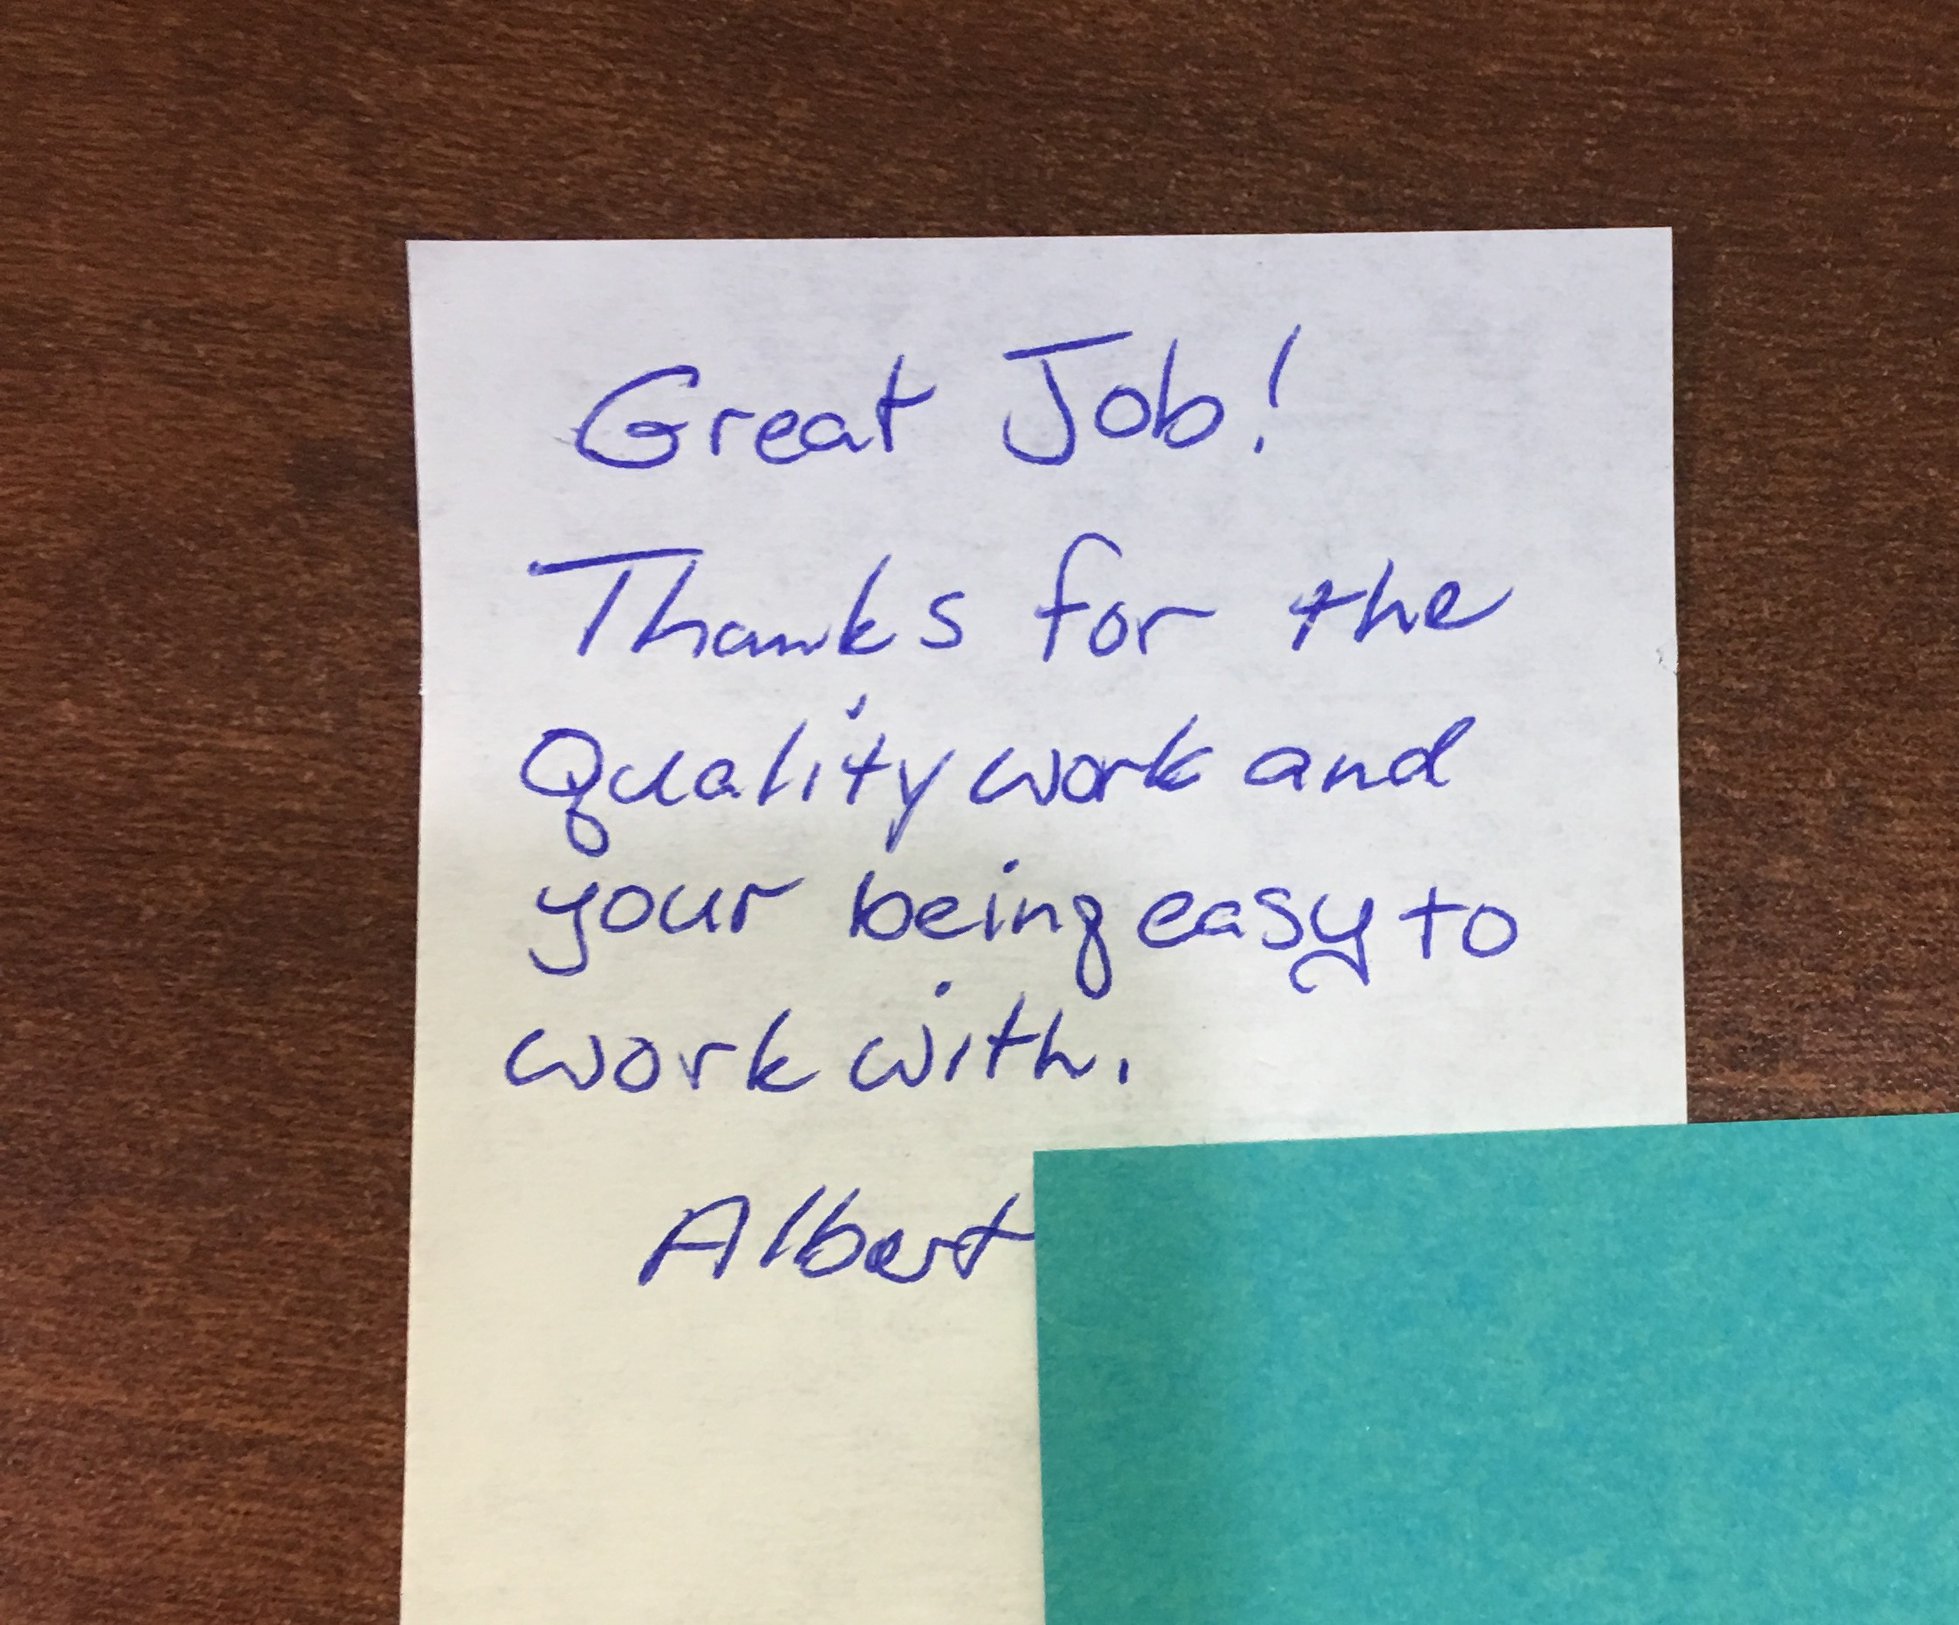 Great Job!
Thanks for the
Quality work and
your being easy to
work with.
Albert